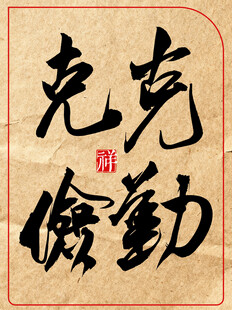 克勤
克儉
祥